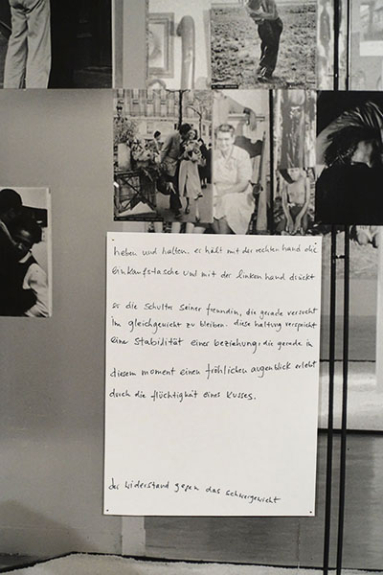 heben und halten. er hält mit der rechten hand die
einkaufstasche und mit der linken hand drückt
er die schulter seiner freundin, die gerade versucht
im gleichgewicht zu bleiben. diese haltung verspricht
eine stabilität einer beziehung: die gerade in
diesem moment einen fröhlichen augenblick erlebt
durch die flüchtigkeit eines kusses.
der widerstand gegen das schwergewicht